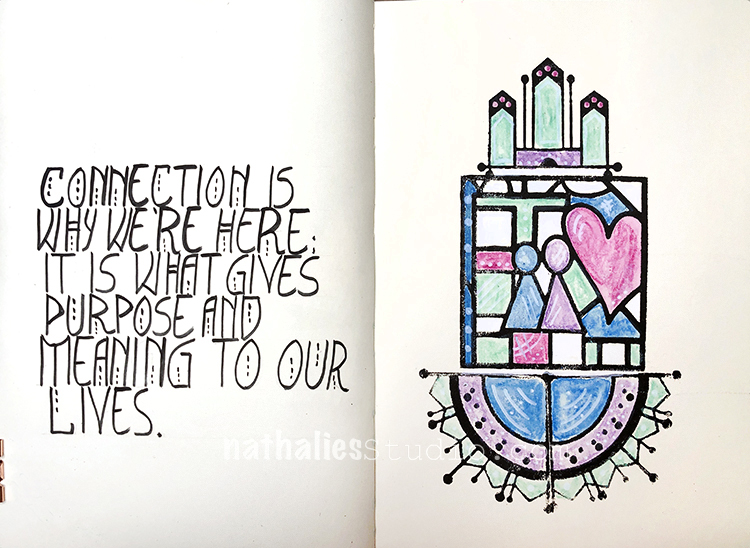 CONNECTION IS
WHY WE'RE HERE;
IT IS WHAT GIVES
PURPOSE AND
MEANING TO OUR
LIVES.
nathaliesstudio.com